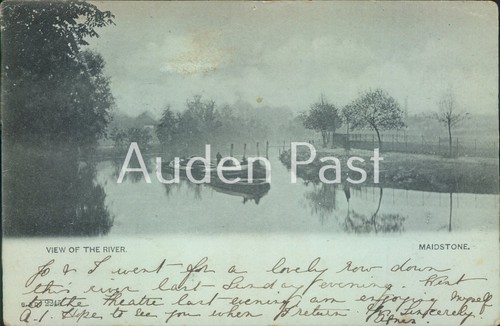 Auden Past
VIEW OF THE RIVER.
MAIDSTONE.
J & I went for a lovely row down
this river last Sunday evening. Went
to the Theatre last evening, am enjoying myself
A.1. Hope to see you when I return. Yr. Sincerely.
Agnes